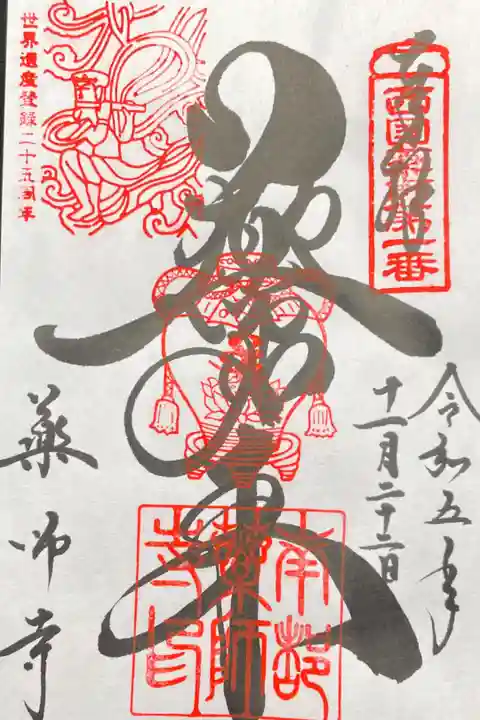 西国薬師第一番
令和五年
十一月二十二日
薬師如来
南都
薬師
寺印
世界遺産登録二十五周年
薬師寺